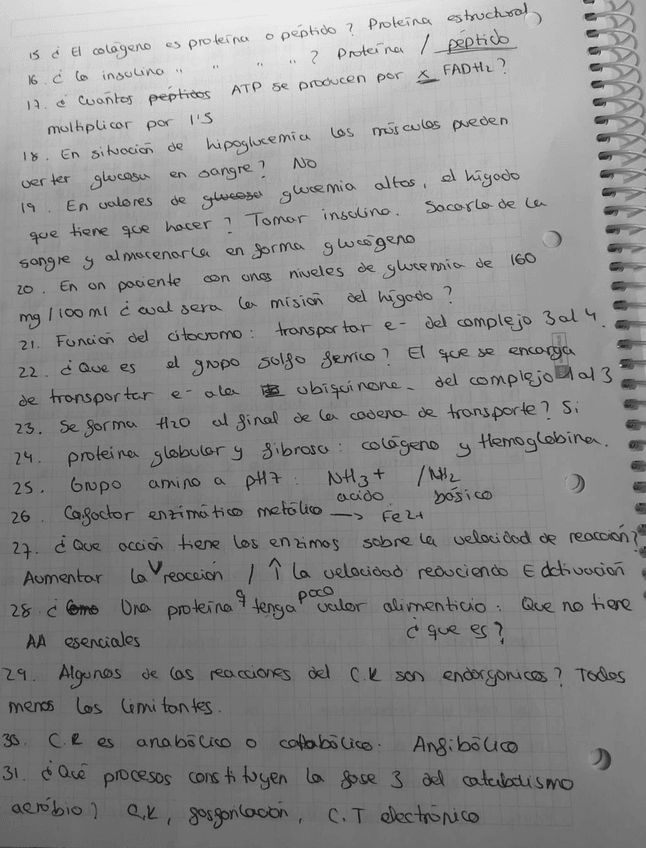 15 ¿ El colágeno es proteína o péptido? Proteína estructural
16. ¿ la insulina " " " " ? Proteína / péptido
17. ¿ Cuántos péptidos ATP se producen por x FADH2?
multiplicar por 1'5
18. En situación de hipoglucemia los músculos pueden
verter glucosa en sangre? No
19. En valores de glucosa glucemia altos, el hígado
que tiene que hacer? Tomar insulina. Sacarla de la
sangre y almacenarla en forma glucógeno
20. En un paciente con unos niveles de glucemia de 160
mg/100ml ¿ cual sera la misión del hígado?
21. Función del citocromo: transportar e- del complejo 3 al 4.
22. ¿Que es el grupo sulfo ferrico? El que se encarga
de transportar e- a la ubiquinona - del complejo 1 al 3
23. Se forma H2O al final de la cadena de transporte? Si
24. proteína globular y fibrosa: colágeno y Hemoglobina.
25. Grupo amino a pH7: NH3+ / NH2
acido básico
26 Cofactor enzimático metálico -> Fe2+
27. ¿Que acción tiene las enzimas sobre la velocidad de reacción?
Aumentar la V reacción / ↑ la velocidad reduciendo E activación
28. ¿ Como Una proteína q tenga poco valor alimenticio: Que no tiene
AA esenciales ¿ que es?
29. Algunas de las reacciones del C.K son endorgonicas? Todas
menos las limitantes.
30. C.K es anabólico o catabólico. Anfibólico
31. ¿Qué procesos constituyen la fase 3 del catabolismo
aeróbio? C.K, fosforilación, C.T electrónico